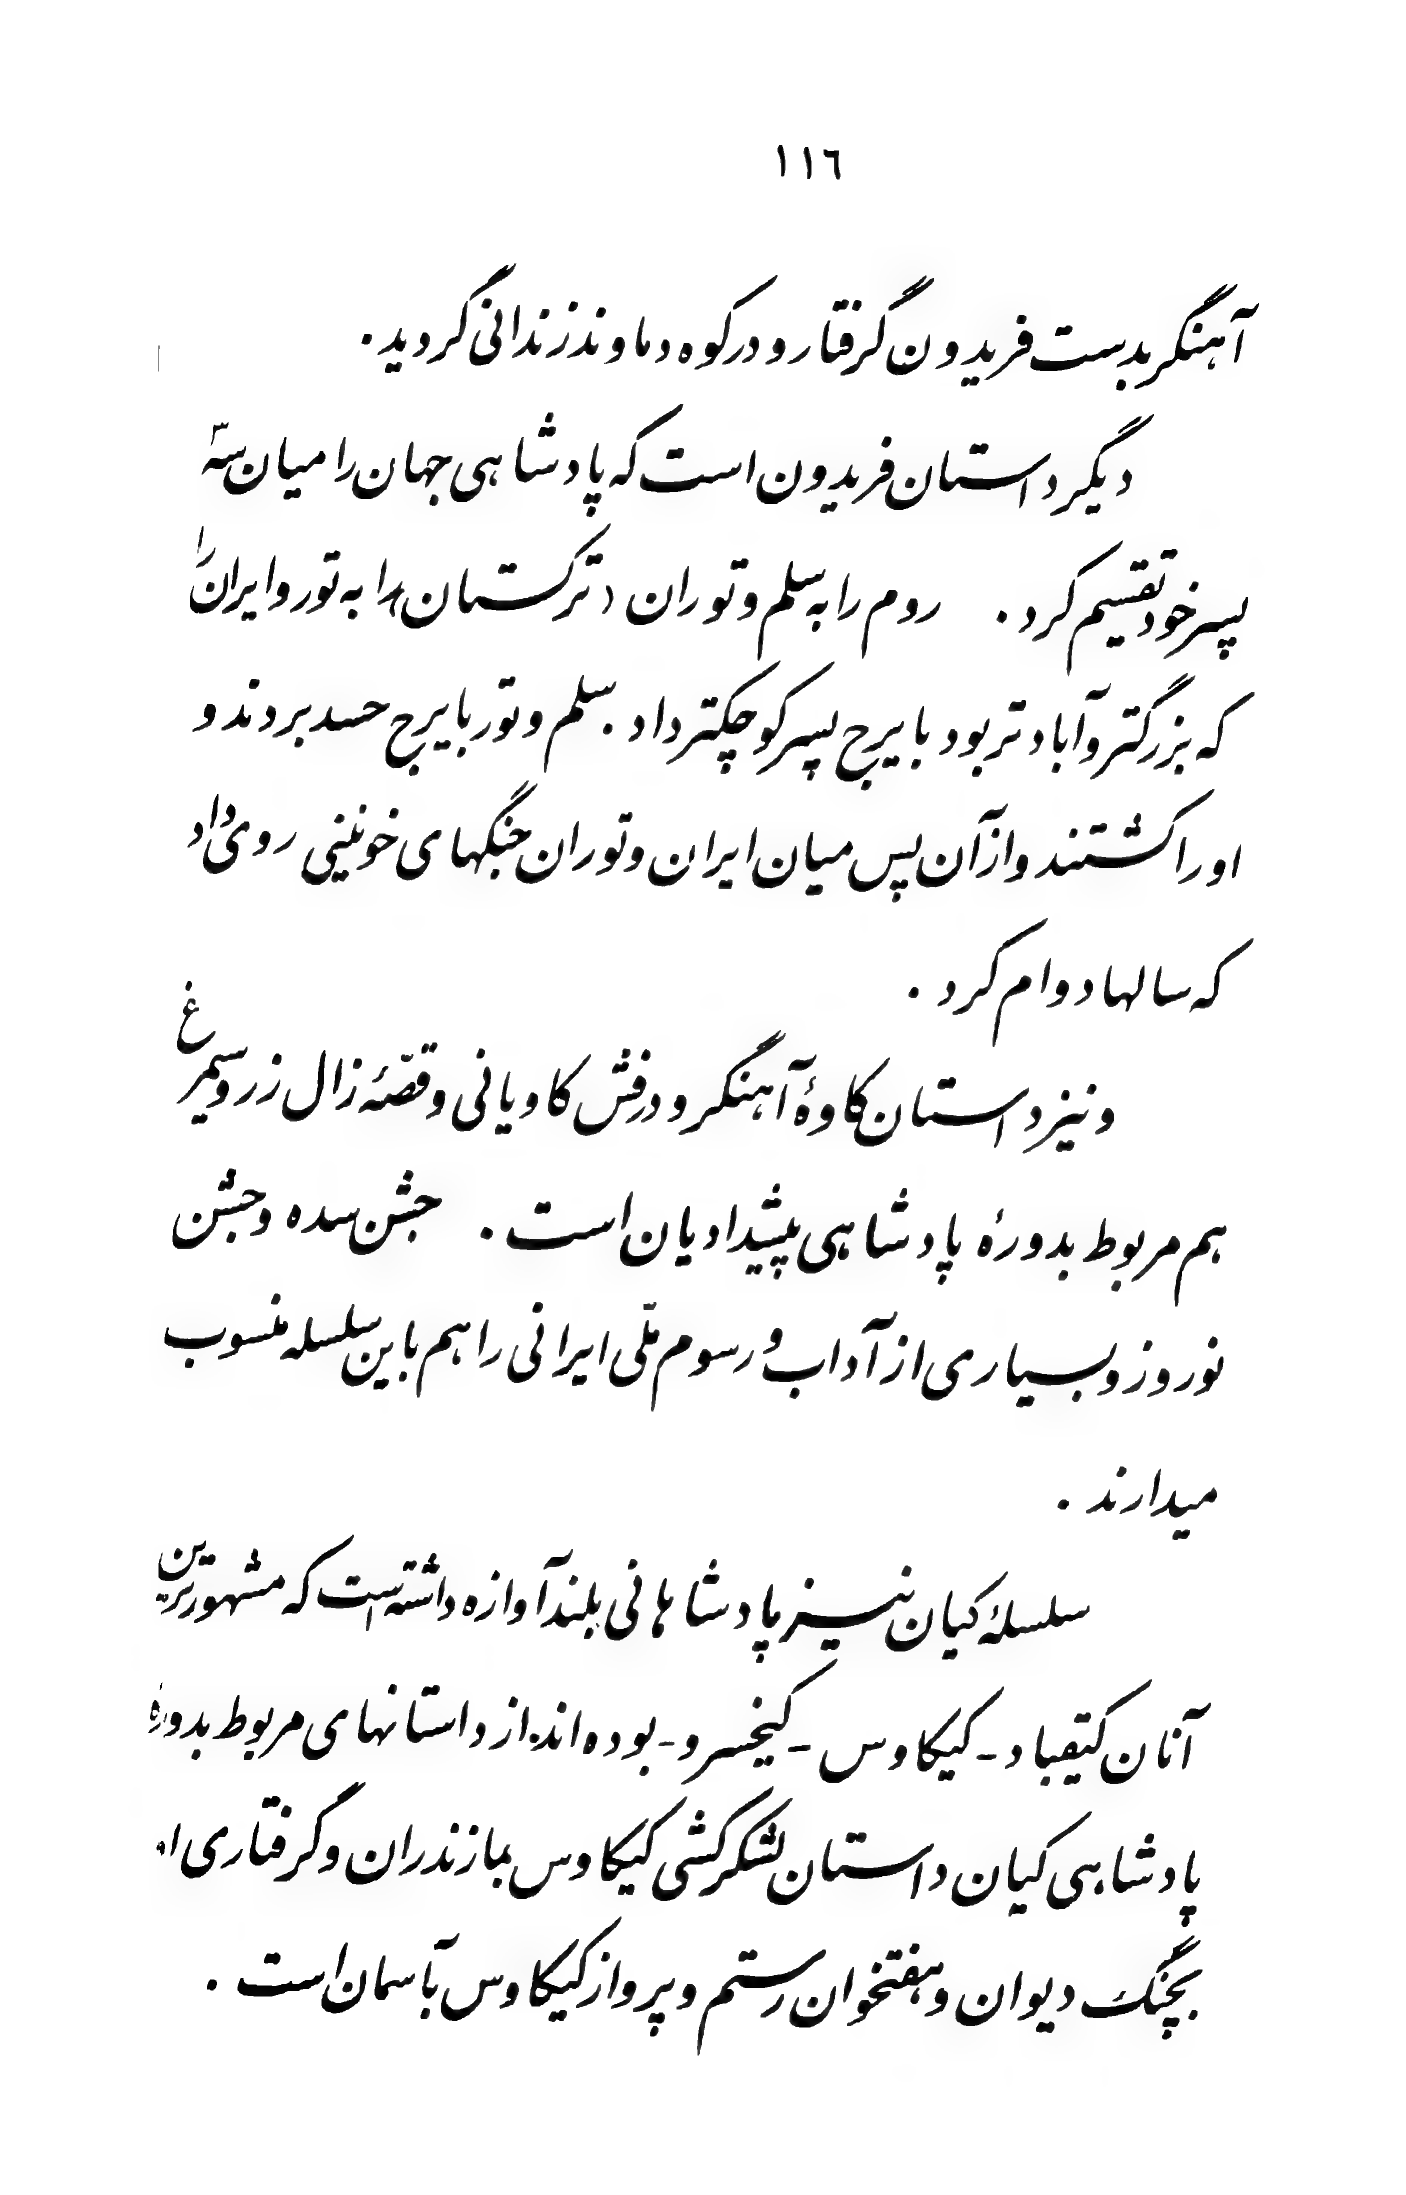 ١١٦
آهنگر بدست فریدون گرفتار و در کوه دماوند زندانی گردید.
دیگر داستان فریدون است که پادشاهی جهان را میان سه
پسر خود تقسیم کرد. روم را به سلم و توران (ترکستان) را به تور و ایران را
که بزرگتر و آبادتر بود بایرج پسر کوچکتر داد. سلم و تور بایرج حسد بردند و
او را کشتند و از آن پس میان ایران و توران جنگهای خونینی روی داد
که سالها دوام کرد.
و نیز داستان کاوۀ آهنگر و درفش کاویانی و قصّۀ زال زر و سیمرغ
هم مربوط بدورۀ پادشاهی پیشدادیان است. جشن سده و جشن
نوروز و بسیاری از آداب و رسوم ملّی ایرانی را هم باین سلسله منسوب
میدارند.
سلسلۀ کیان نیز پادشاهانی بلند آوازه داشته است که مشهورترین
آنان کیقباد - کیکاوس - کیخسرو - بوده اند. از داستانهای مربوط بدورۀ
پادشاهی کیان داستان لشکرکشی کیکاوس بمازندران و گرفتاری او
بچنگ دیوان و هفتخوان رستم و پرواز کیکاوس بآسمان است.